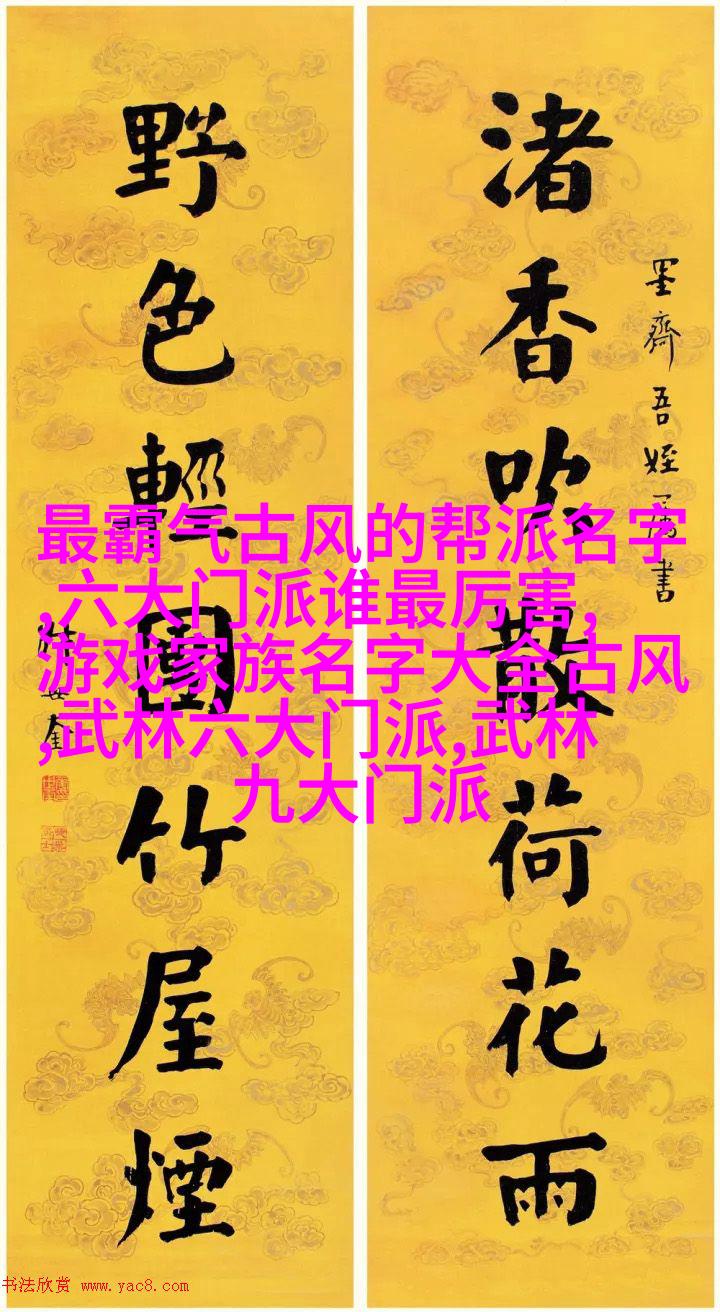 渚香吹散荷花雨
墨齋吾姪屬書
野色輕團竹屋煙
最霸气古风的帮派名字
,六大门派谁最厉害,
游戏家族名字大全古风
,武林六大门派,武林
九大门派
书法欣赏 www.yac8.com